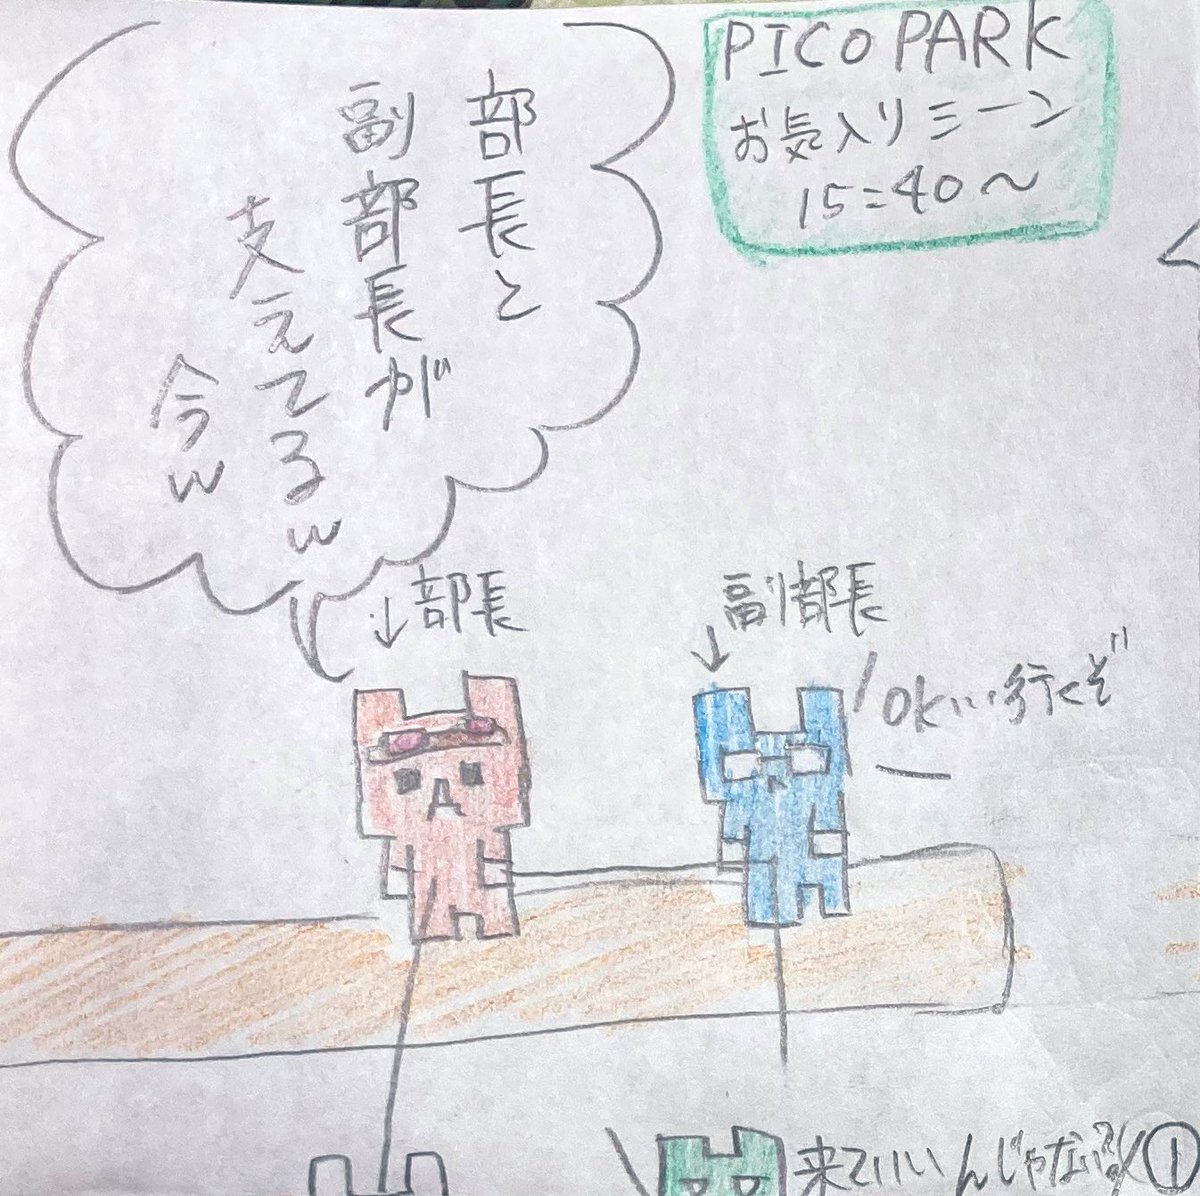 PICO PARK
お気入りミーン
15:40〜
部長と
副部長が
支えてるw
今w
↓部長
副部長
↓
OK!!行くぞ"
来ていいんじゃない
①